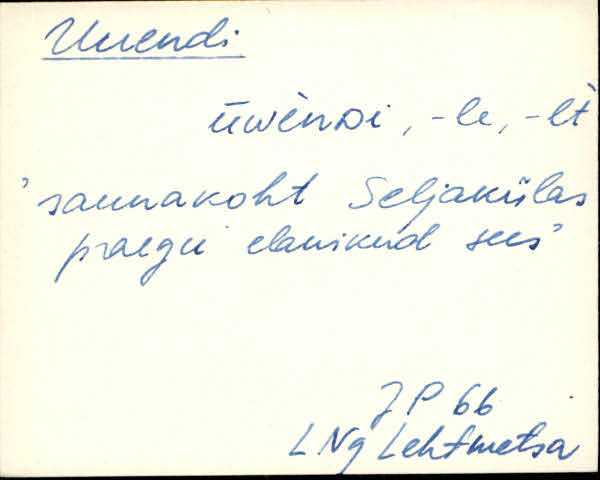 Uuendi
ūwènDi, -le, -lt
'saunakoht Seljakülas
praegu elanikud sees'
JP 66
L Ng Lehtmetsa